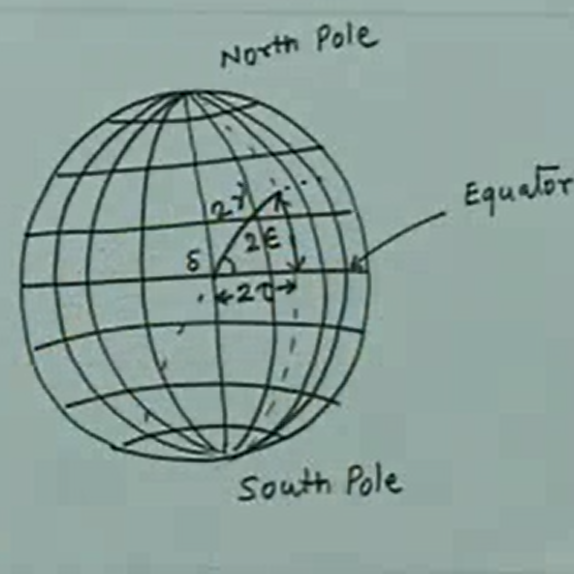 North Pole
Equator
2γ
2ε
δ
2τ
South Pole